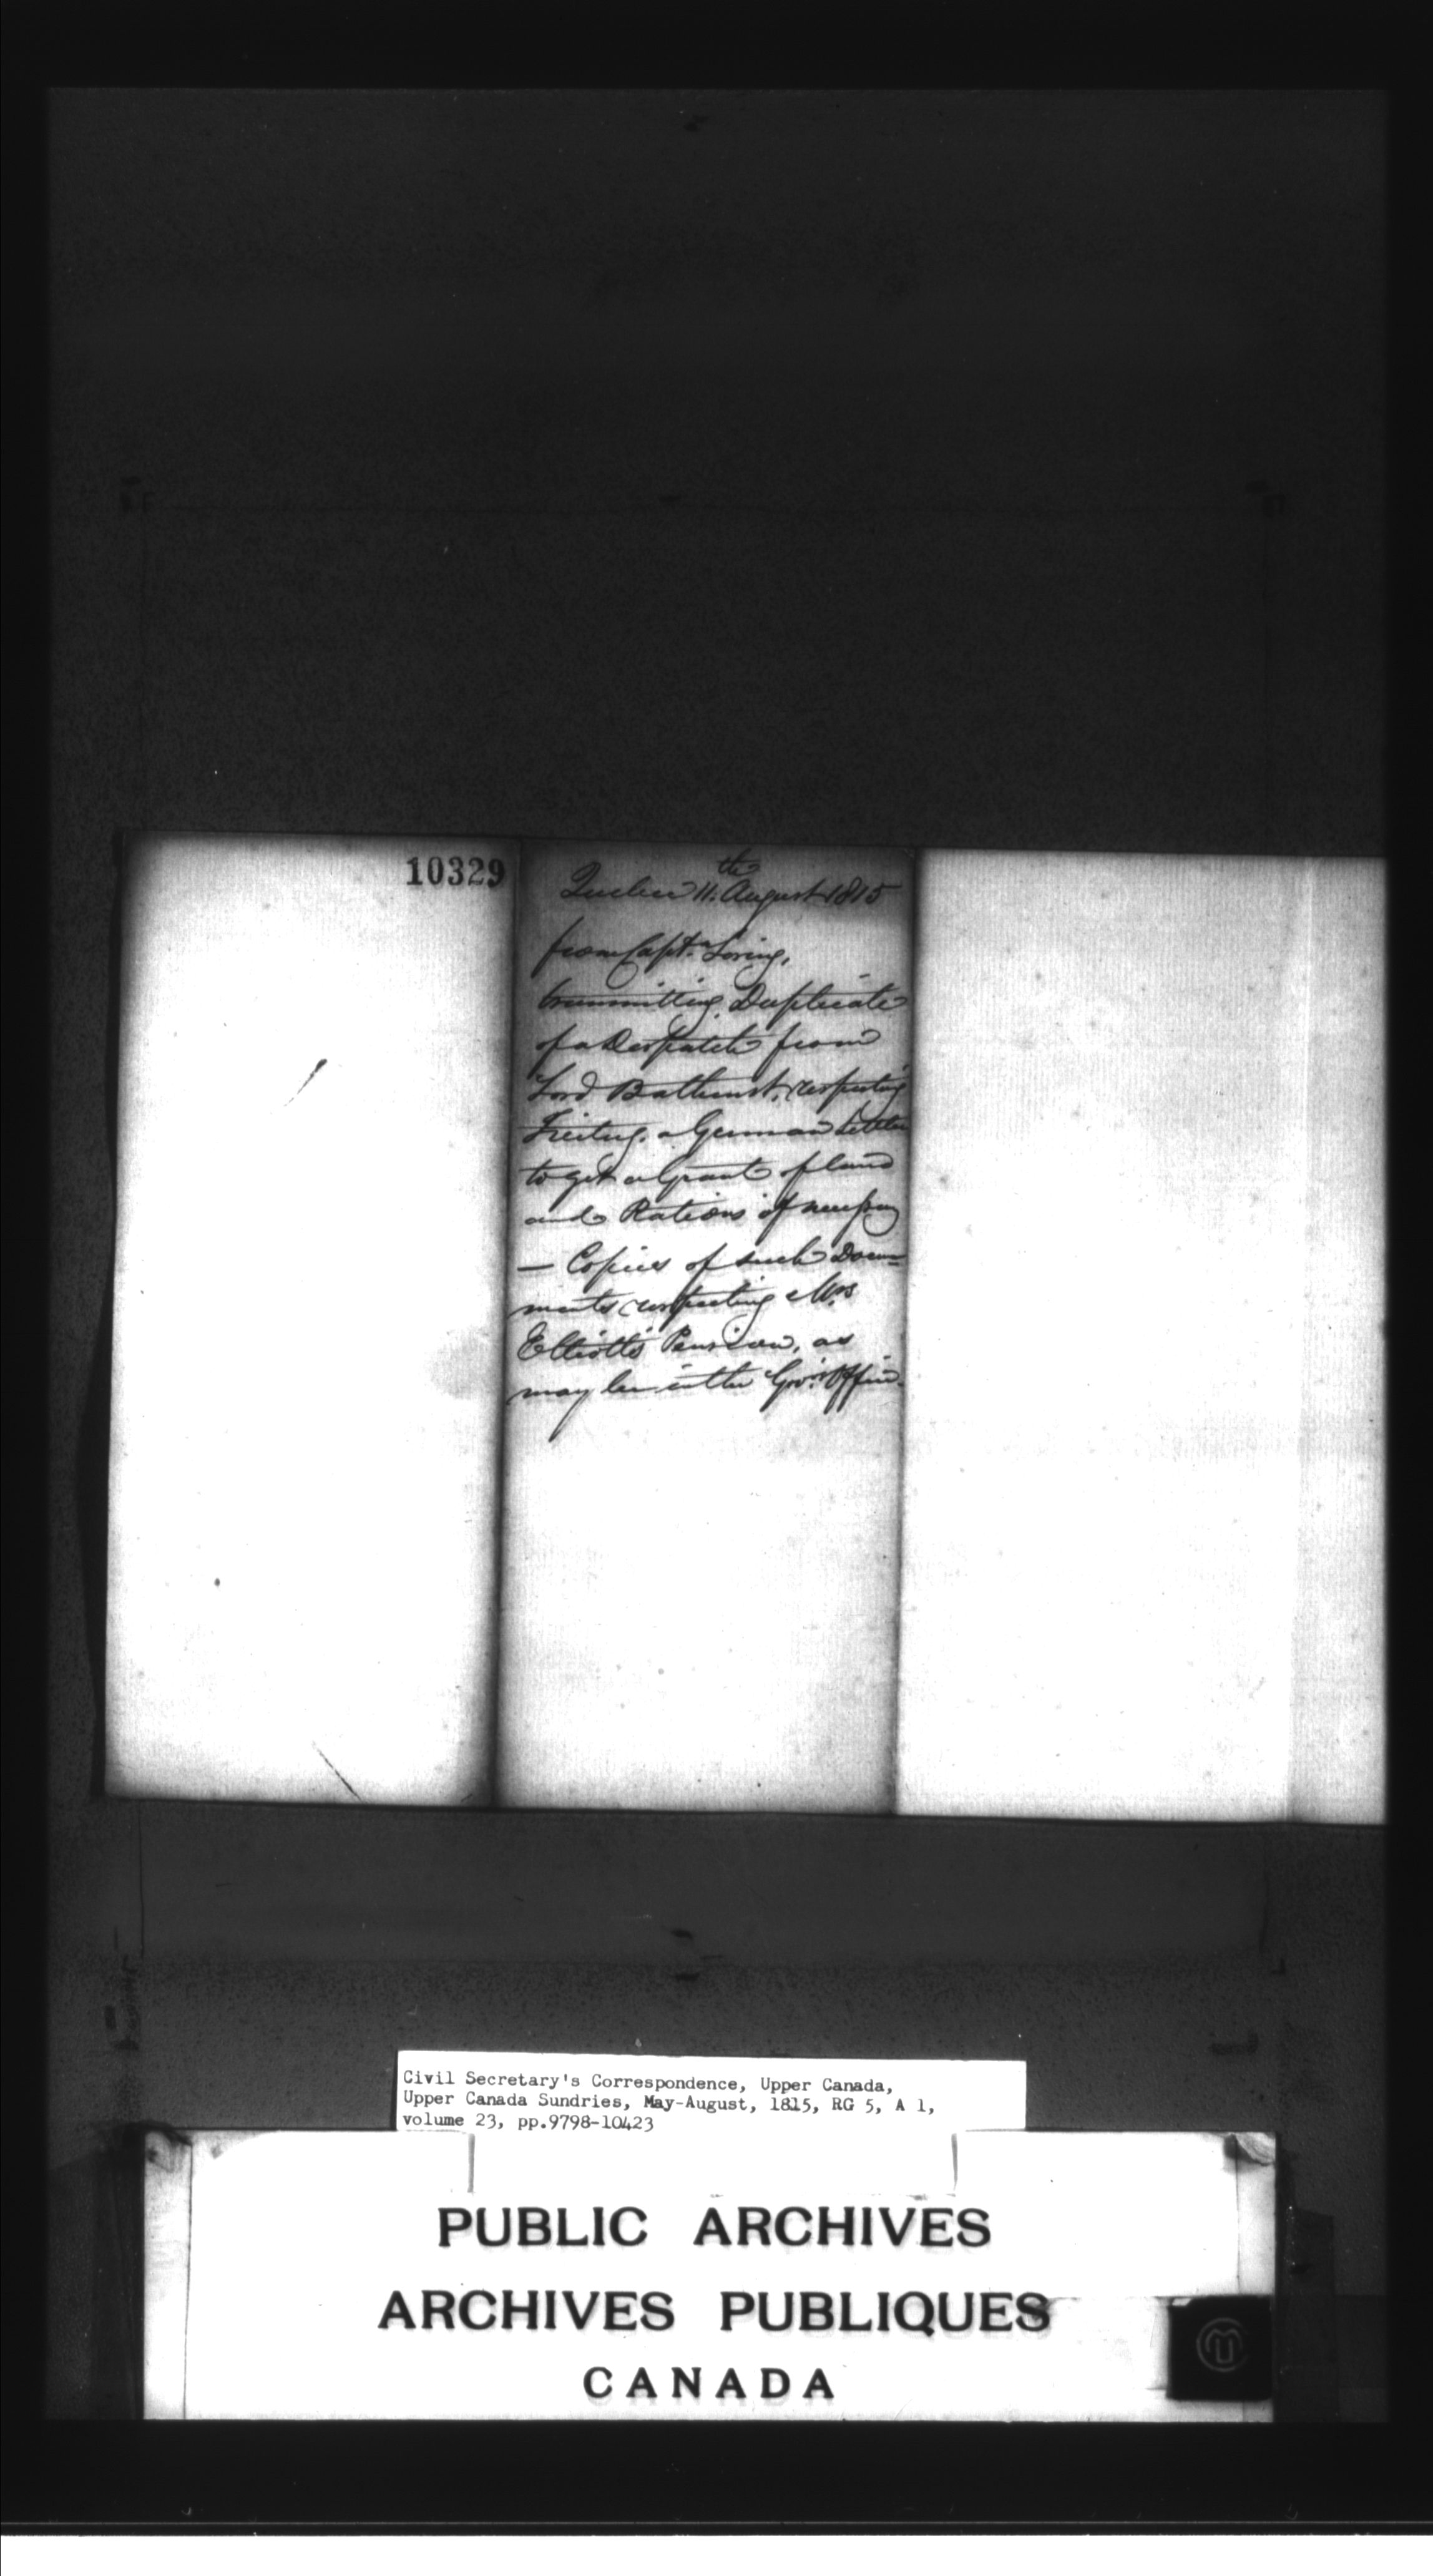 10329
Quebec 11.th August 1815
from Capt.n Loring,
transmitting Duplicate
of a Despatch from
Lord Bathurst, respecting
Freitag, a German Settler
to get a Grant of land
and Rations if necessary
— Copies of such Docu=
ments respecting Mrs
Elliott's Pension, as
may be in the Gov.rs Office.
Civil Secretary's Correspondence, Upper Canada,
Upper Canada Sundries, May-August, 1815, RG 5, A 1,
volume 23, pp.9798-10423
PUBLIC ARCHIVES
ARCHIVES PUBLIQUES
CANADA